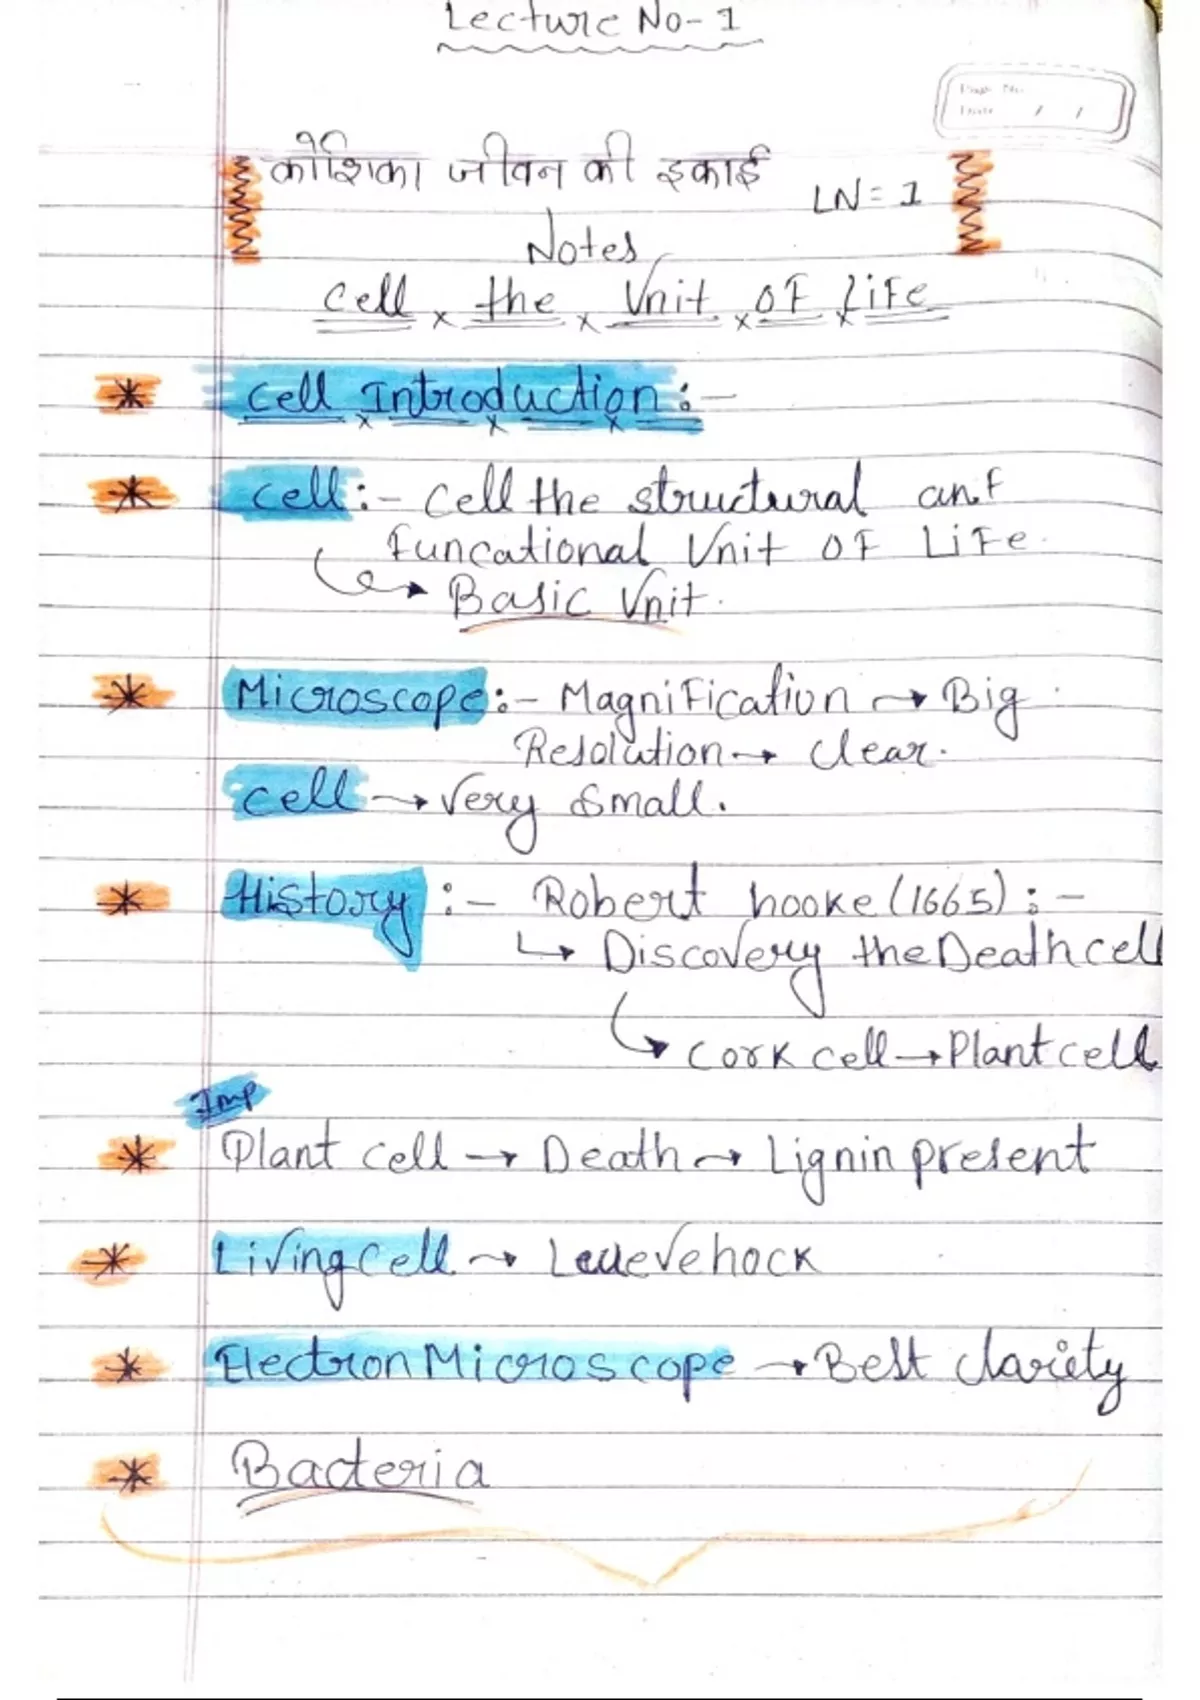 Lecture No-1
Page No.
Date / /
कोशिका जीवन की इकाई
LN=1
Notes
Cell the Unit OF Life
* Cell Introduction:-
* Cell:- Cell the structural anf
Funcational Unit OF Life.
→ Basic Unit.
* Microscope:- Magnification → Big
Resolution → Clear.
Cell → Very Small.
* History:- Robert hooke (1665):-
↳ Discovery the Death cell
↳ Cork cell → Plant cell
Imp
* Plant cell → Death → Lignin present
* Living Cell → Leuevehock
* Electron Microscope → Best clariety
* Bacteria